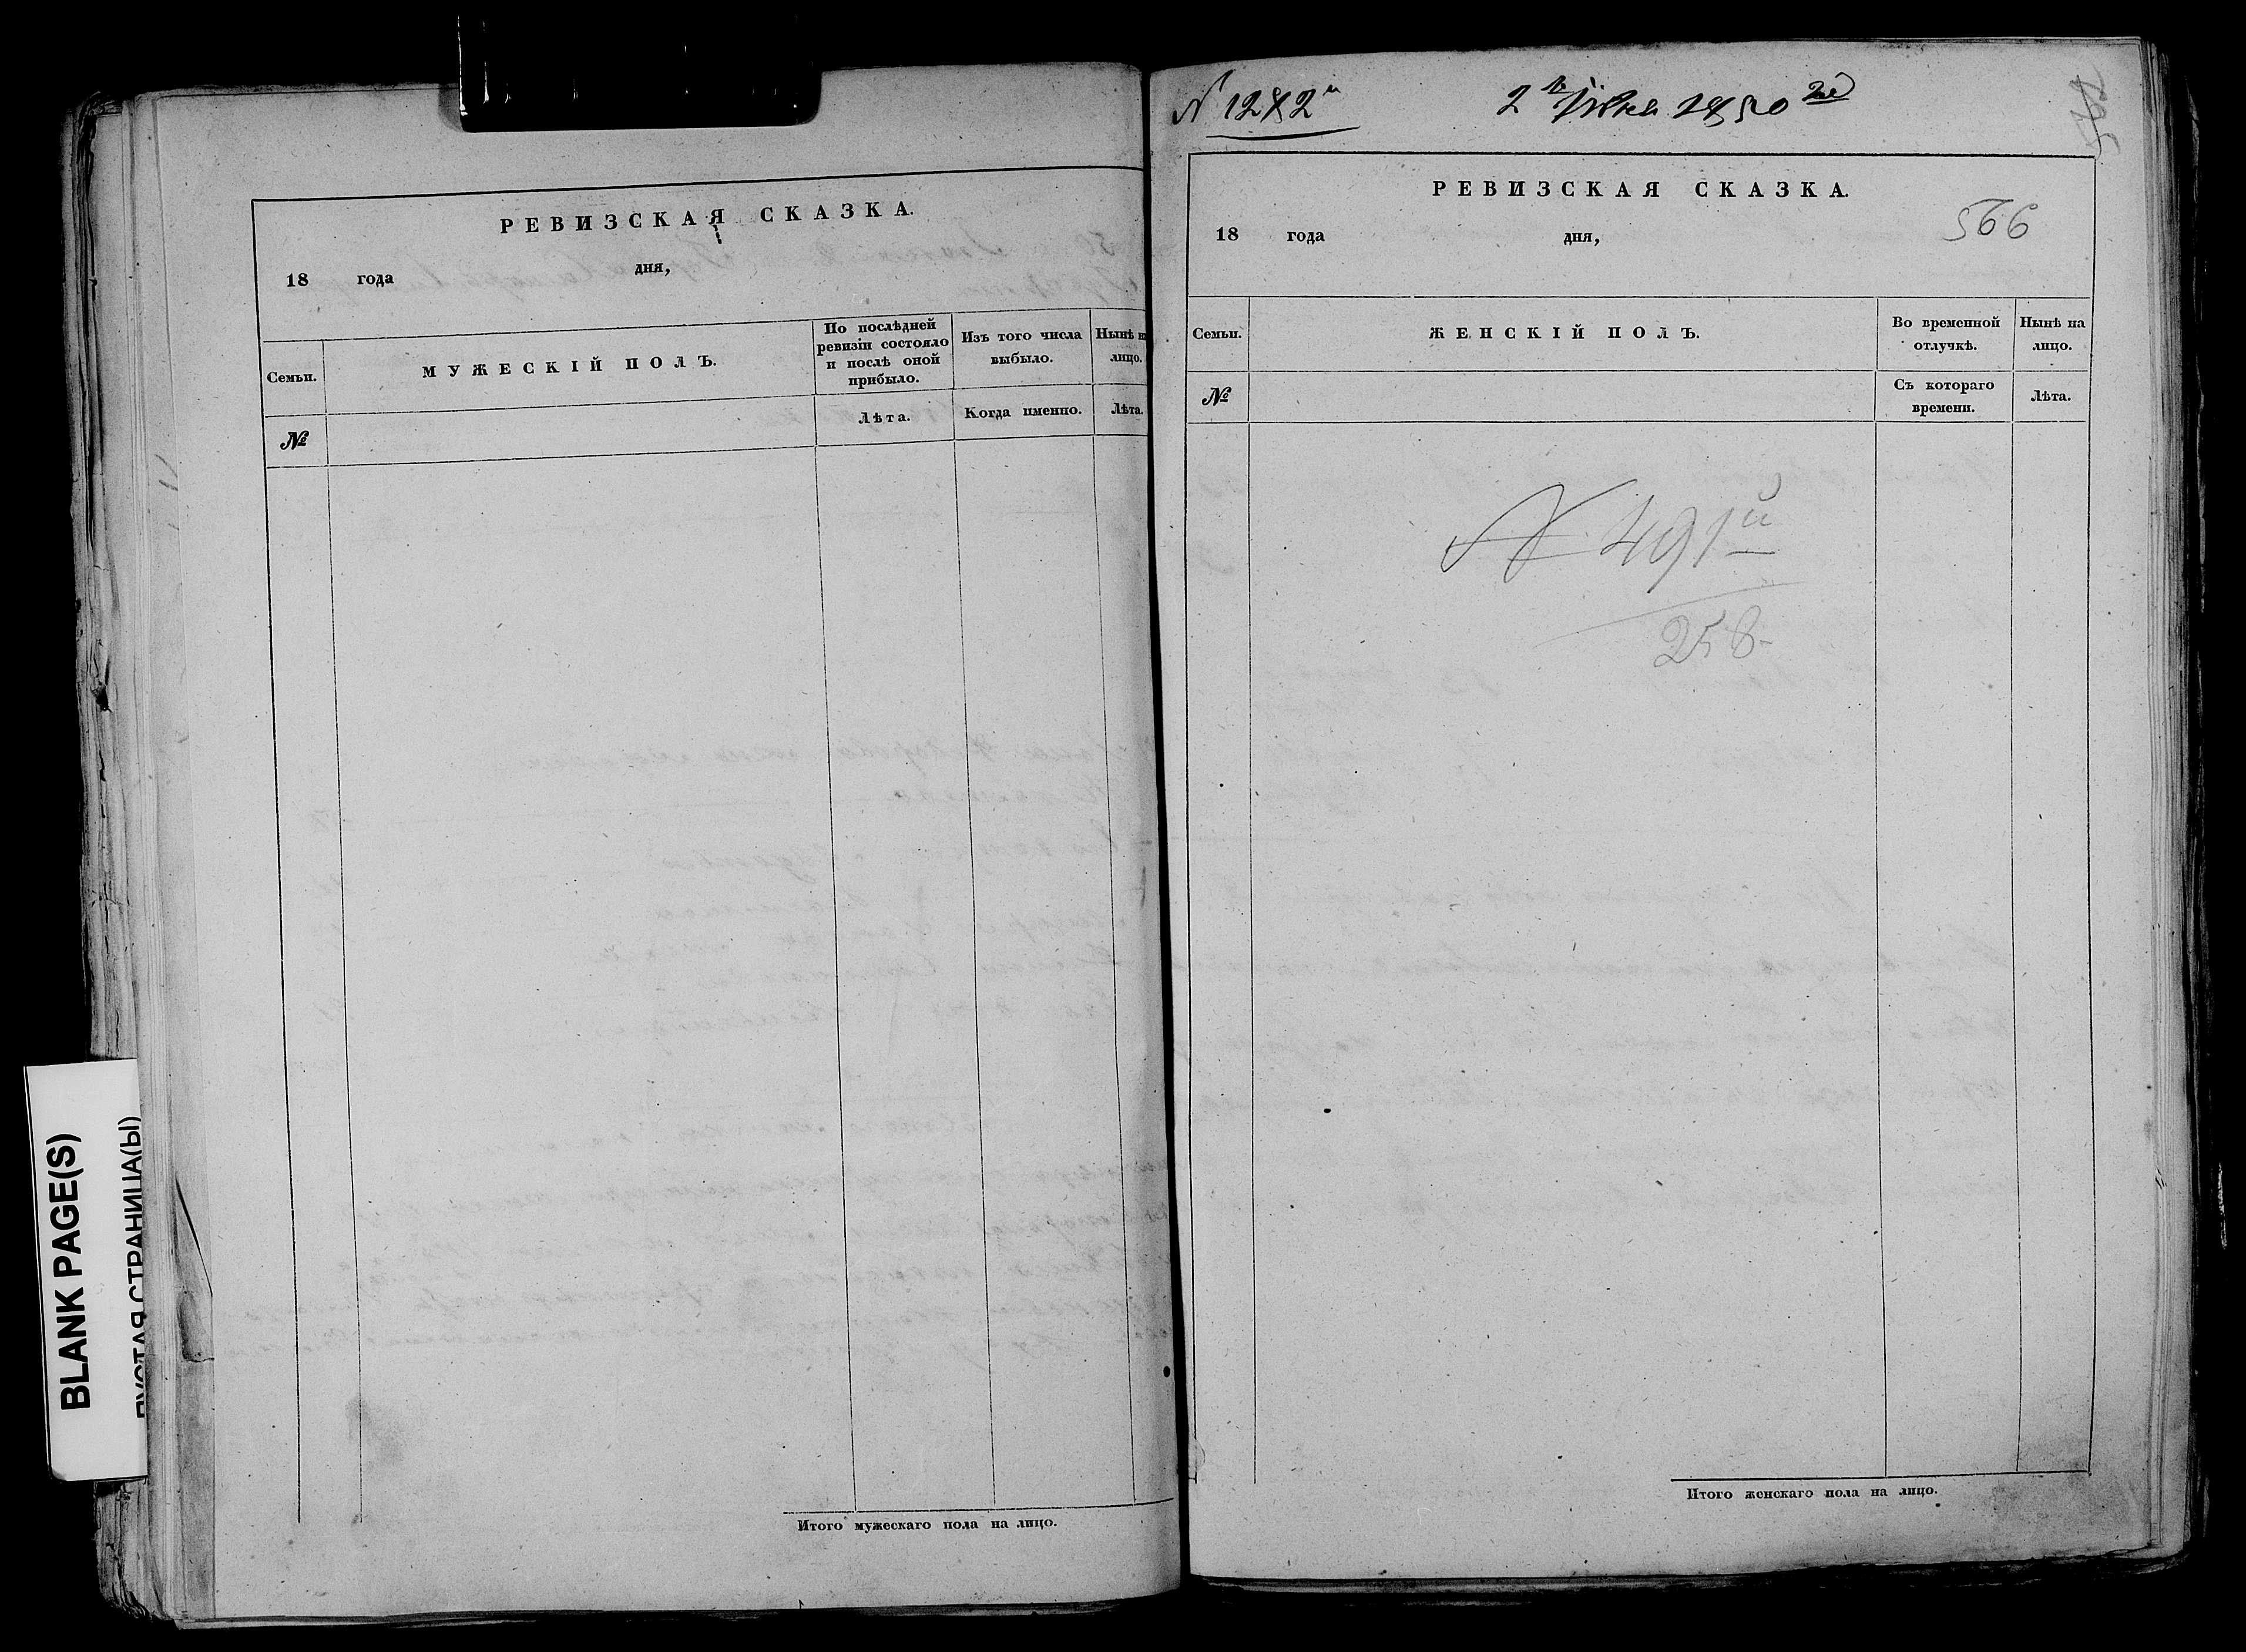 РЕВИЗСКАЯ СКАЗКА.
18 года дня,
Семьи.
МУЖЕСКІЙ ПОЛЪ.
По послѣдней
ревизіи состояло
и послѣ оной
прибыло.
Изъ того числа
выбыло.
Нынѣ на
лицо.
№
Лѣта.
Когда именно.
Лѣта.
Итого мужескаго пола на лицо.
BLANK PAGE(S)
ПУСТАЯ СТРАНИЦА(Ы)
1850
РЕВИЗСКАЯ СКАЗКА.
18 года дня,
566
Семьи.
ЖЕНСКІЙ ПОЛЪ.
Во временной
отлучкѣ.
Нынѣ на
лицо.
№
Съ котораго
времени.
Лѣта.
N 491й
258
Итого женскаго пола на лицо.